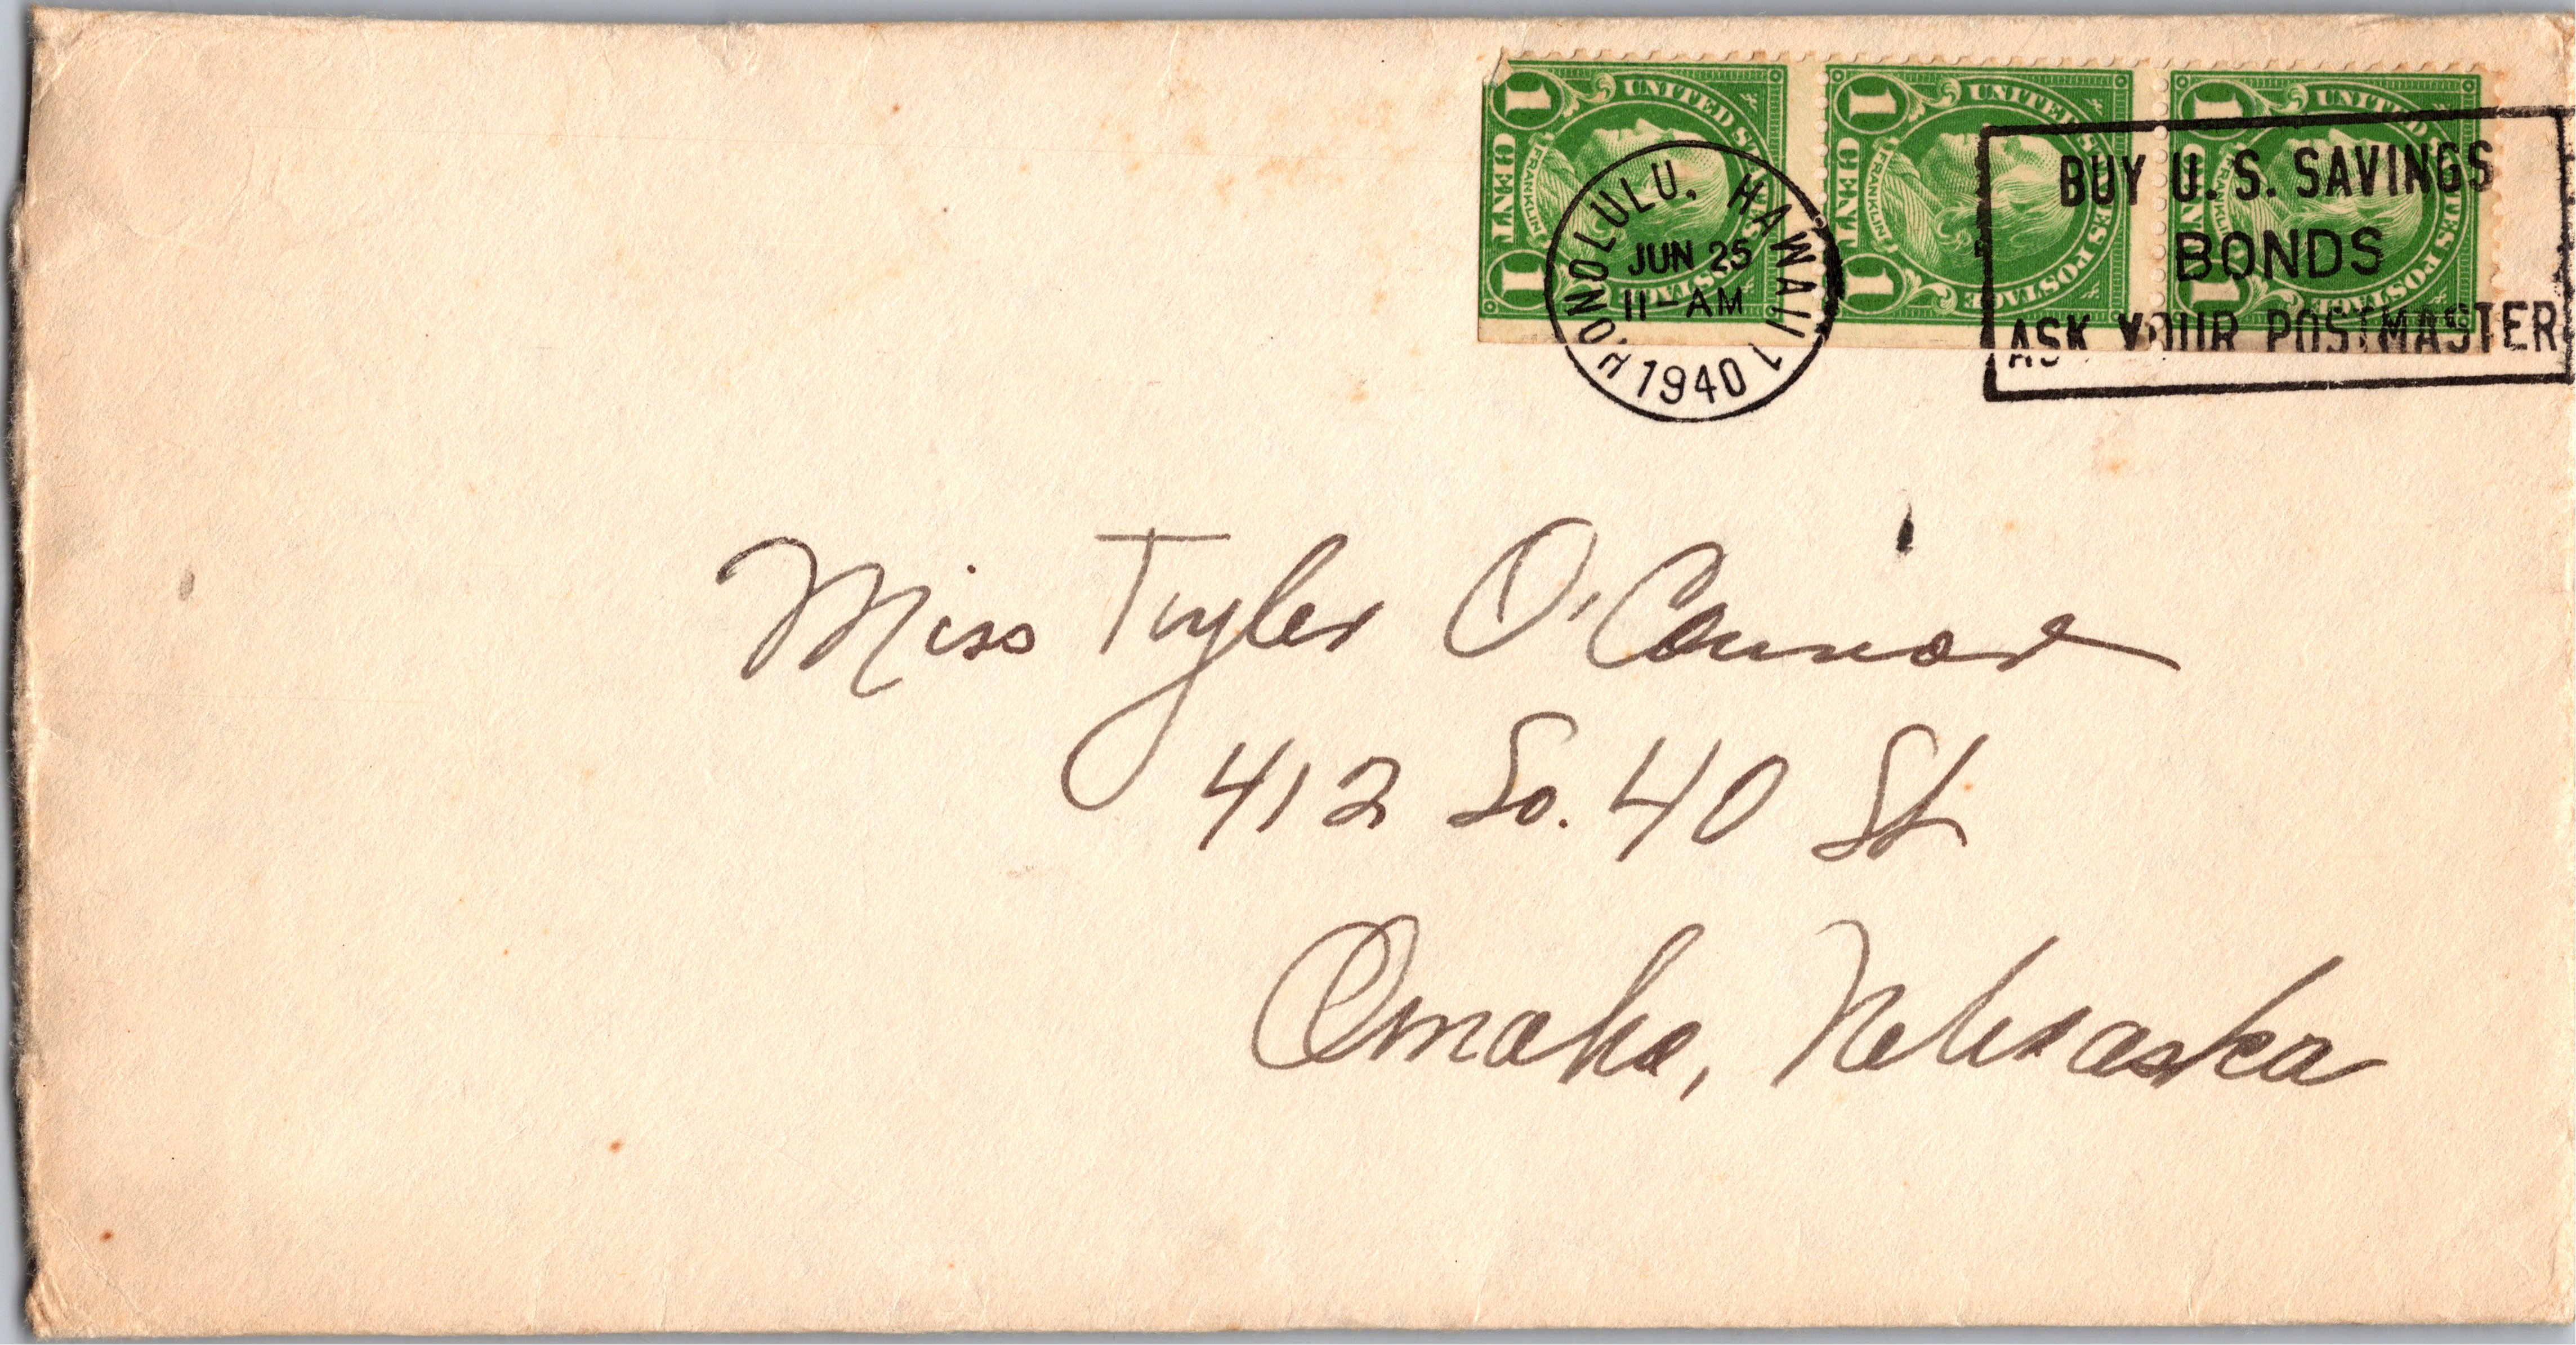 1 UNITED STATES POSTAGE 1 CENT FRANKLIN 1
1 UNITED STATES POSTAGE 1 CENT FRANKLIN 1
1 UNITED STATES POSTAGE 1 CENT FRANKLIN 1
HONOLULU, HAWAII 1
JUN 25
11-AM
1940
BUY U. S. SAVINGS
BONDS
ASK YOUR POSTMASTER
Miss Tyler O'Connor
412 So. 40 St
Omaha, Nebraska